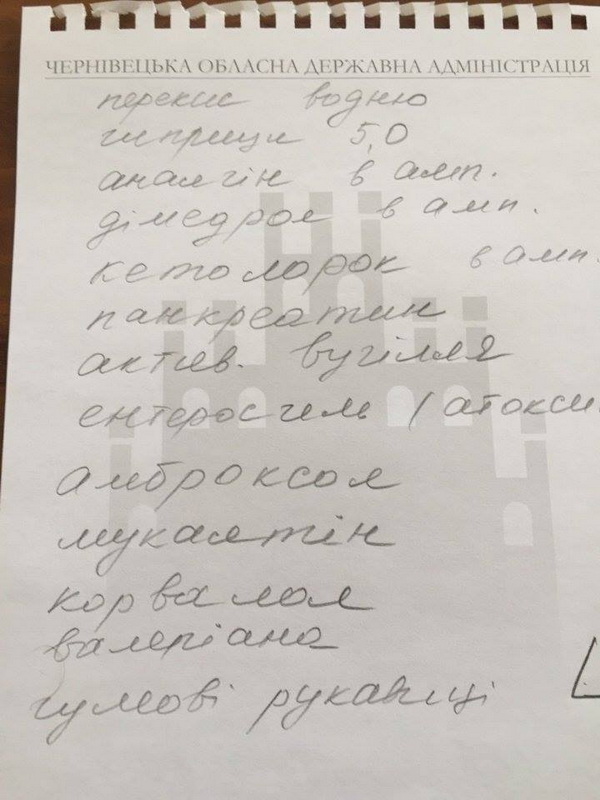 ЧЕРНІВЕЦЬКА ОБЛАСНА ДЕРЖАВНА АДМІНІСТРАЦІЯ
перекис водню
шприци 5,0
аналгін в амп.
дімедрол в амп.
кетолорок в амп.
панкреатин
актив. вугілля
ентеросгель / атокси
амброксол
мукалтін
корвалол
валеріана
гумові рукавиці